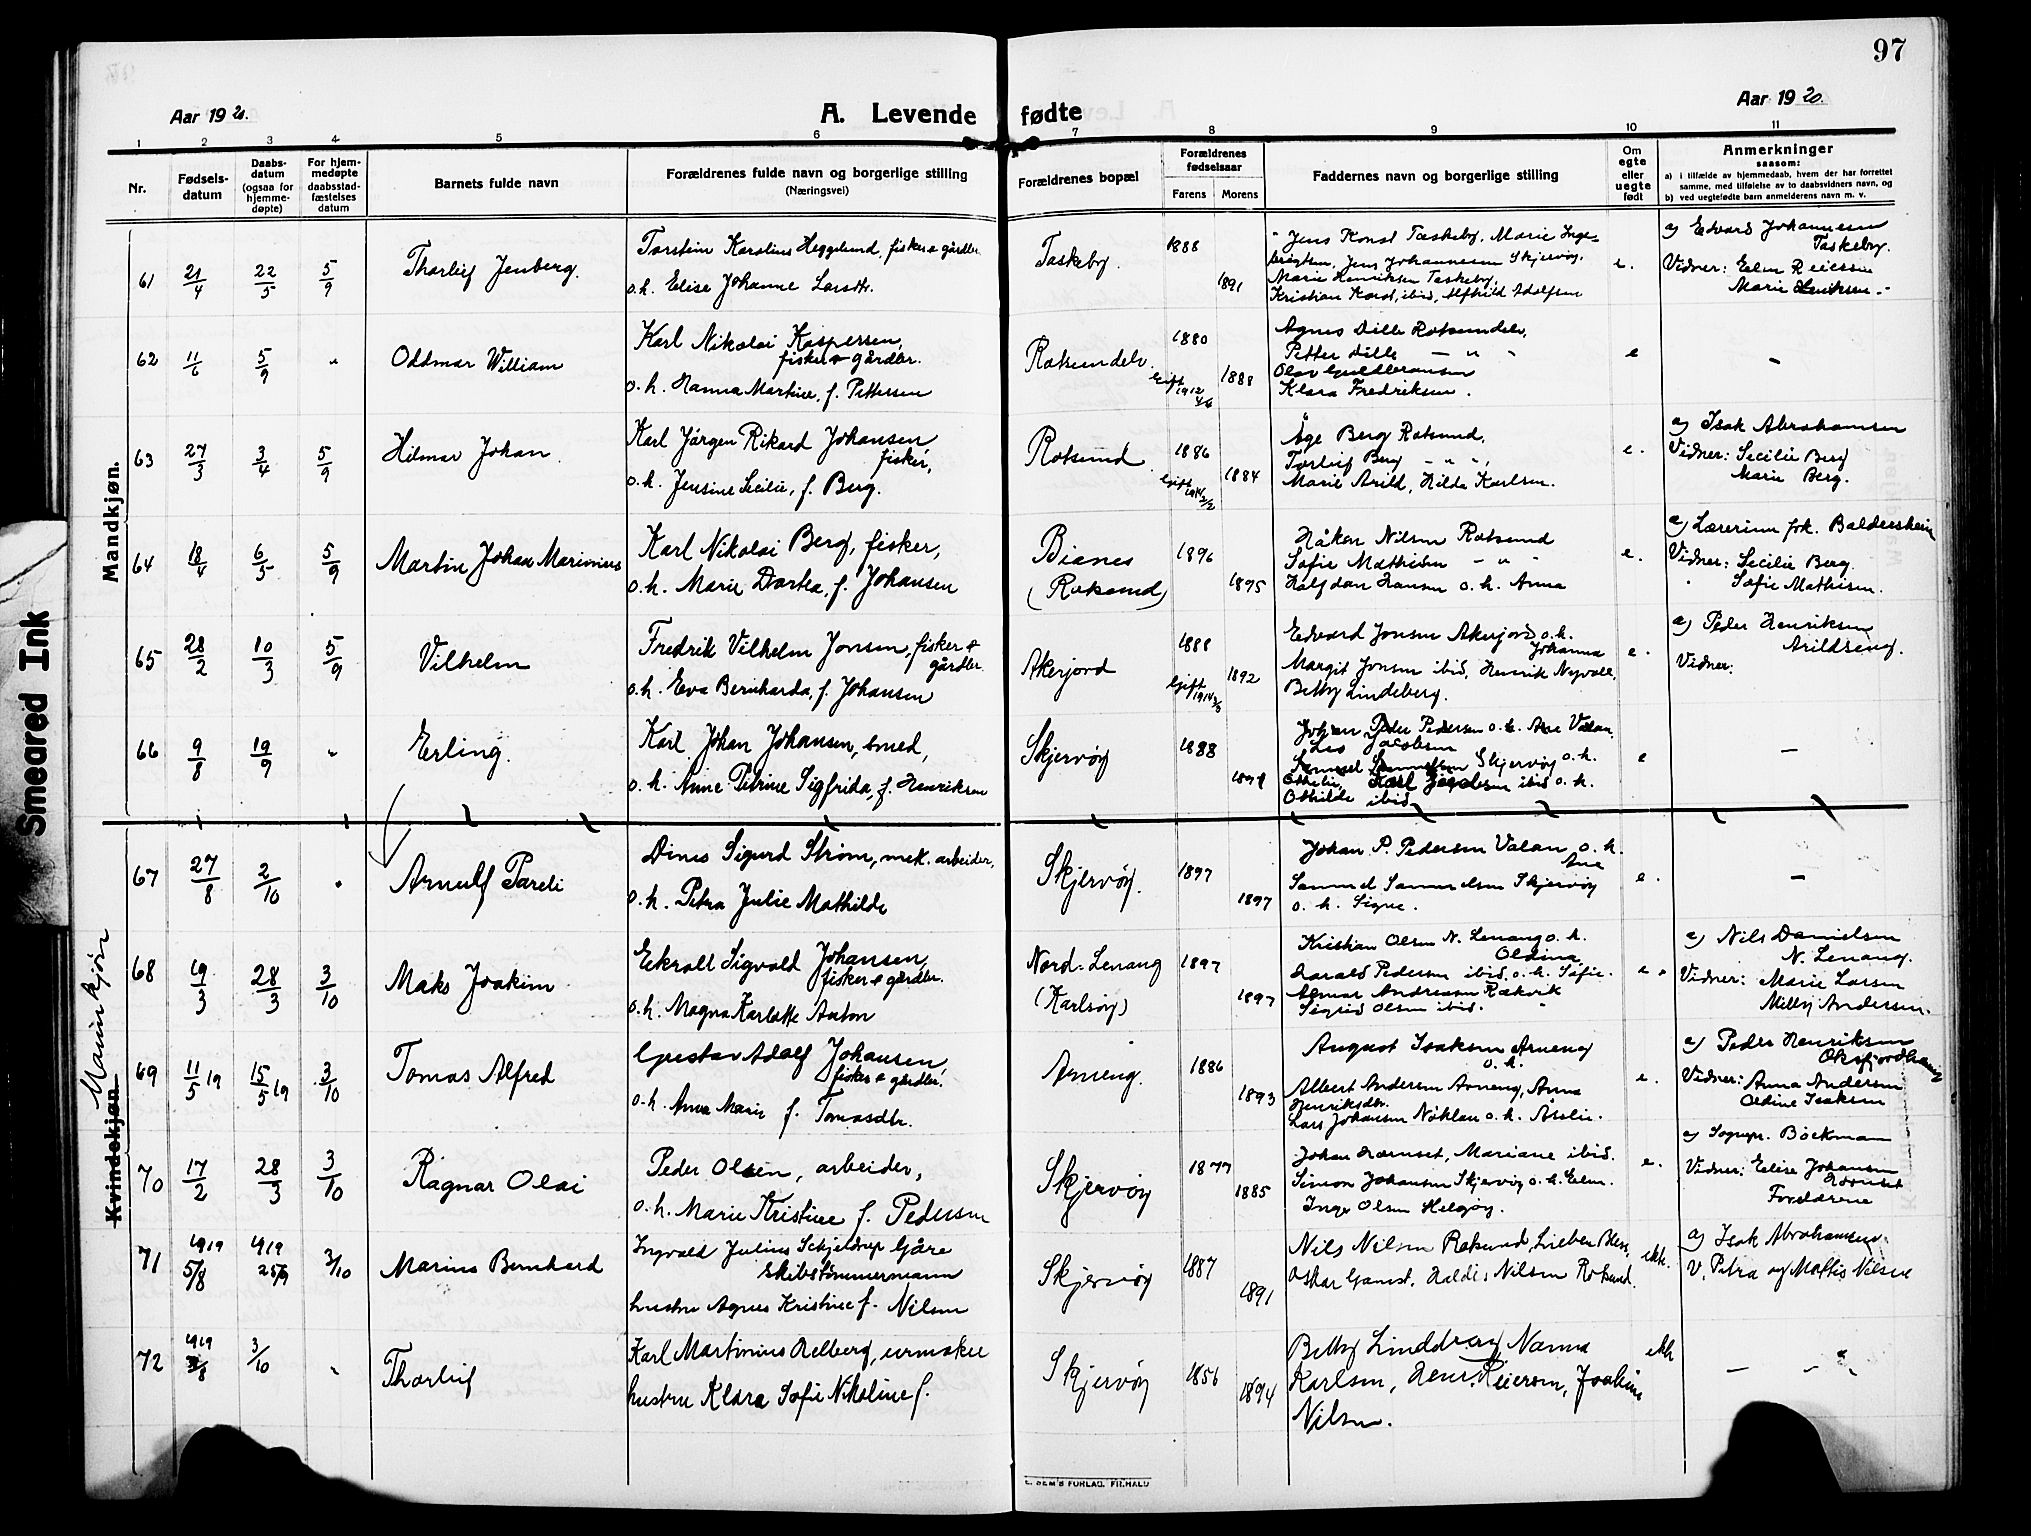 97
Aar 1920.
A. Levende fødte
Aar 1920.
1 2 3 4 5 6 7 8 9 10 11
Nr.
Fødsels-
datum
Daabs-
datum
(ogsaa for
hjemme-
døpte)
For hjem-
medøpte
daabsstad-
fæstelses
datum
Barnets fulde navn
Forældrenes fulde navn og borgerlige stilling
(Næringsvei)
Forældrenes bopæl
Forældrenes
fødselsaar
Farens Morens
Faddernes navn og borgerlige stilling
Om
egte
eller
uegte
født
Anmerkninger
saasom:
a) i tilfælde av hjemmedaab, hvem der har forrettet
samme, med tilføielse av to daabsvidners navn, og
b) ved uegtefødte barn anmelderens navn m. v.
Mandkjøn.
61 21/4 22/5 5/9 Thorleif Jenberg.
Torstein Karolius Heggelund, fisker & gårdbr.
o.h. Elise Johanne Larsdtr.
Taskeby. 1888 1891
Jens Konst Taskeby, Marie Inge-
brigtsen, Jens Johannesen Skjervøy,
Marie Henriksen Taskeby,
Kristian Konst, ibid, Alfhild Adolfsen
e.
a) Edvard Johannesen
Taskeby.
Vidner: Elen Reiersen
Marie Henriksen
62 11/6 5/9 " Oddmar William
Karl Nikolai Kaspersen,
fisker & gårdbr.
o.h. Hanna Martine, f. Pettersen
Rotsundelv. 1880 1888
Gift 1912 4/6
Agnes Dille Rotsundelv,
Petter Dille — " "
Olav Guldbransen
Klara Fredriksen.
e
-
63 27/3 3/4 5/9 Hilmar Johan.
Karl Jørgen Rikard Johansen,
fisker,
o.h. Jensine Secilie, f. Berg.
Rotsund. 1886 1884
Åge Berg Rotsund,
Torleif Berg - " ",
Marie Arild, Hilda Karlsen.
e.
a) Isak Abrahamsen
Vidner: Secilie Berg
Marie Berg.
64 18/4 6/5 5/9 Martin Johan Marinius
Karl Nikolai Berg, fisker,
o.h. Marie Dortea, f. Johansen
Bianes
(Rotsund) 1896 1895
Håkon Nilsen Rotsund
Sofie Mathisen - " "
Halfdan Hansen o.h. Anna
e.
a) Lærerinne frk. Baldersheim
Vidner: Secilie Berg.
Sofie Mathisen.
65 28/2 10/3 5/9 Vilhelm
Fredrik Vilhelm Jonsen, fisker &
gårdbr.
o.h. Eva Bernharda, f. Johansen
Akerjord 1888 1892
Edvard Jonsen Akerjord o.h.
Johanna
Margit Jonsen ibid, Henrik Nyvoll,
Betty Lindeberg.
e.
a) Peder Henriksen
Arildseng.
Vidner:
66 9/8 19/9 " Erling.
Karl Johan Johansen, smed,
o.h. Anne Petrine Sigfrida, f. Henriksen
Skjervøy 1888
Johan Peder Pedersen o.h. Ane Valan,
Jacobsen
Samuel Samuelsen Skjervøy o.h.
Othelie, Karl Jacobsen ibid o.h.
Othilde ibid
e
-
Kvindekjøn.
Mannkjønn
67 27/8 2/10 " Arnulf Pareli
Dines Sigurd Strøm, mek. arbeider,
o.h. Petra Julie Mathilde
Skjervøy. 1897 1897
Johan P. Pedersen Valan o.h.
Ane
Samuel Samuelsen Skjervøy
o.h. Signe.
e.
-
68 19/3 28/3 3/10 Maks Joakim
Ekroll Sigvald Johansen,
fisker & gårdbr.
o.h. Magna Karlotte Anton
Nord-Lenang
(Karlsøy) 1897 1897
Kristian Olsen N. Lenang o.h.
Oldina,
Harald Pedersen ibid. o.h. Sofie.
Almar Andreasen Rækvik
Sigrid Olsen ibid.
e.
a) Nils Danielsen
N. Lenang.
Vidner: Marie Larsen
Milly Andersen.
69 11/5 19 15/5 19 3/10 Tomas Alfred
Gustav Adolf Johansen,
fisker & gårdbr.
o.h. Anna Marie f. Tomasdtr.
Arneng. 1886 1893
August Isaksen Arneng
o.h.
Albert Andersen Arneng, Anna
Henriksdtr.
Lars Johansen Nøklan o.h. Aselie.
e.
a) Peder Henriksen
Oksfjordhavn
Vidner: Anna Andersen
Oldine Isaksen
70 17/2 28/3 3/10 Ragnar Olai
Peder Olsen, arbeider,
o.h. Marie Kristine f. Pedersen
Skjervøy 1877 1885
Johan Hornset, Mariane ibid.
Simon Johansen Skjervøy o.h. Elen.
Inge Olsen Helgøy.
e.
a) Sognepr. Bøckman
Vidner: Elise Johansen
Hornset
Forældrene
71 1919 5/8 1919 25/9 3/10 Marius Bernhard
Ingvald Julius Schjeldrup Gåre
skibstømmermann
hustru Agnes Kristine f. Nilsen
Skjervøy 1887 1891
Nils Nilsen Rotsund,
Oskar Gamst, Haldis Nilsen Rotsund.
ekte.
a) Isak Abrahamsen
V. Petra og Mathis Nilsen
72 1919 3/10 " Thorleif
Karl Martinius Relberg, urmaker
hustru Klara Sofie Nikoline f.
Skjervøy 1856 1894
Betty Lindeberg, Nanna
Karlsen, Henr. Reiersen, Joakim
Nilsen.
ekte
- - "
Smeared Ink
E. SEM'S FORLAG, FR.HALD